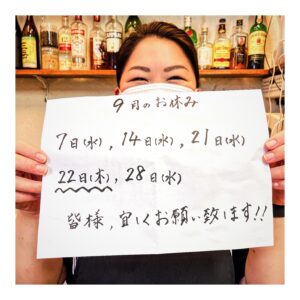 9月のお休み
7日(水), 14日(水), 21日(水)
22日(木), 28日(水)
皆様, 宜しくお願い致します!!